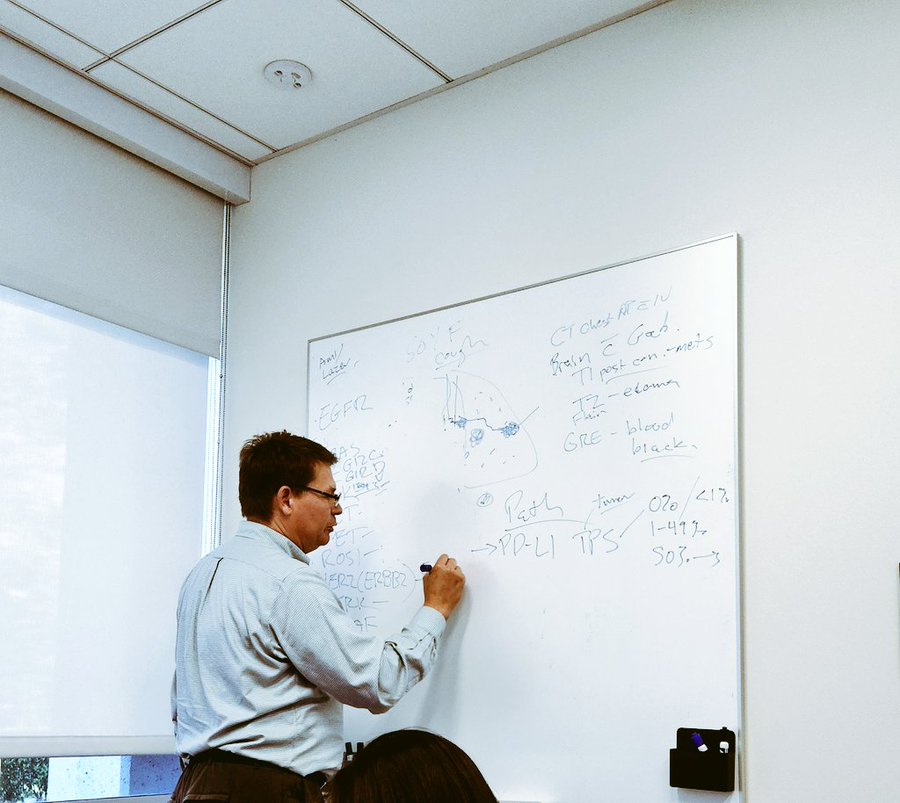 Amy
Lazar.
50 Y F
Cough
EGFR
KRAS
G12C
G12D
MET
ROS1
HER2 (ERBB2)
CT Chest AP
Brain C Gad.
T1 post con. - mets
T2 - edema
Flair
GRE - blood
black.
Path
tumor
→ PD-L1 TPS
0% / <1%
1-49%
50% →